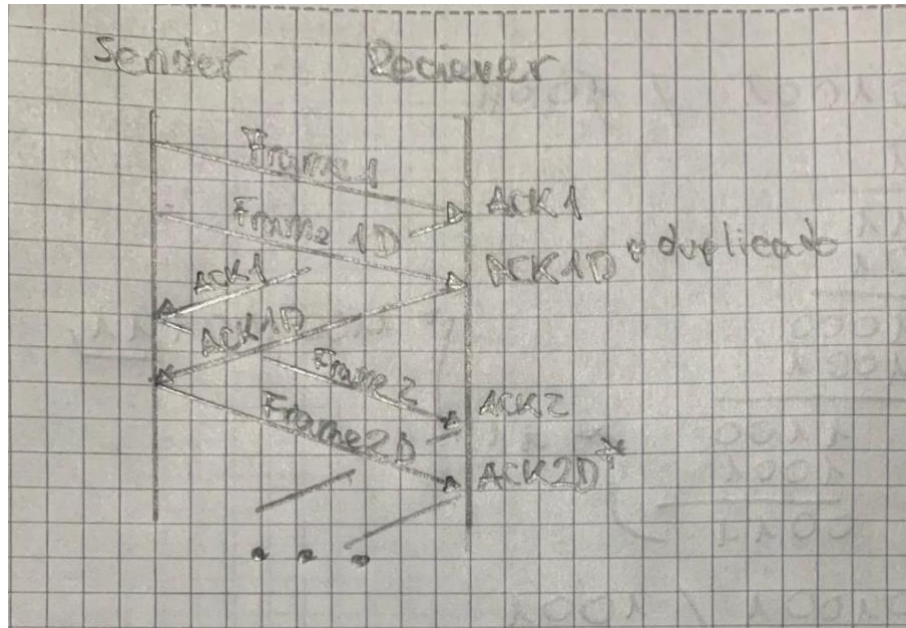 Sender Reciever
Frame 1
ACK1
Frame 1D
ACK1D * duplicado
ACK1
ACK1D
Frame 2
ACK2
Frame 2D
ACK2D*
...